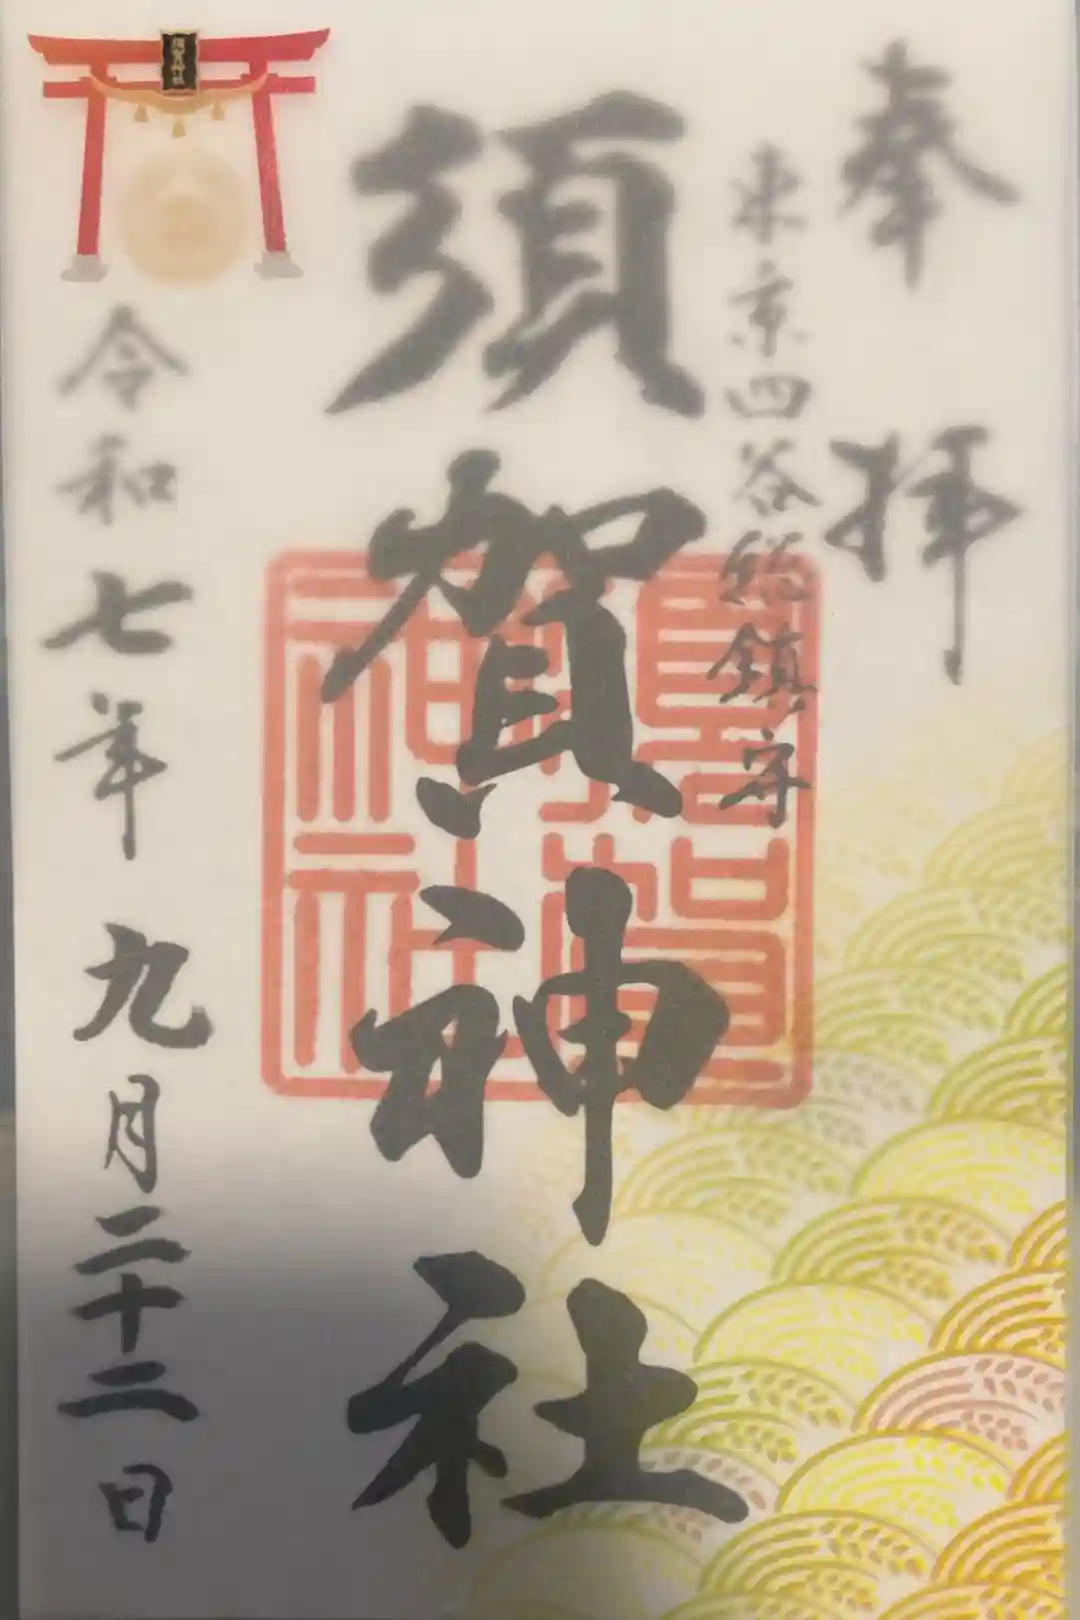 奉拝
東京四谷総鎮守
須賀神社
須賀神社
令和七年九月二十二日
須賀神社